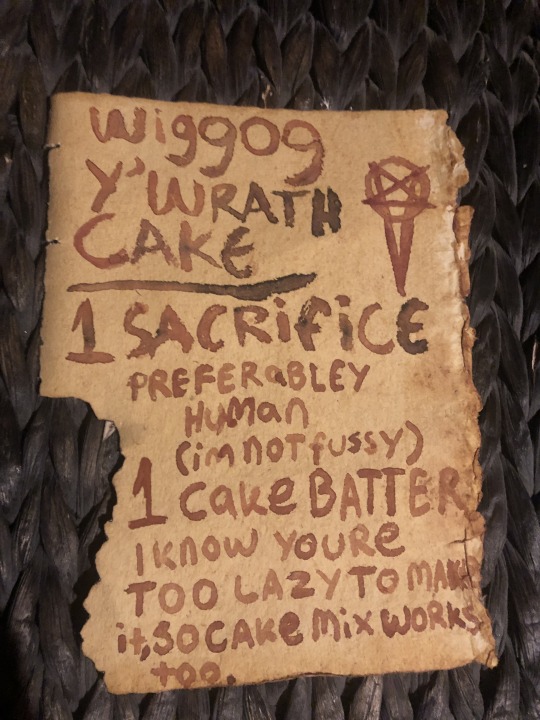 wiggog
Y'WRATH
CAKE
1 SACRifiCE
PREFERaBLEY
HuMan
(im noT fussy)
1 Cake BATTER
I KNOW YOURe
TOO LAZY TO MAKE
iT, SO CAKe MiX WORKS
TOO.